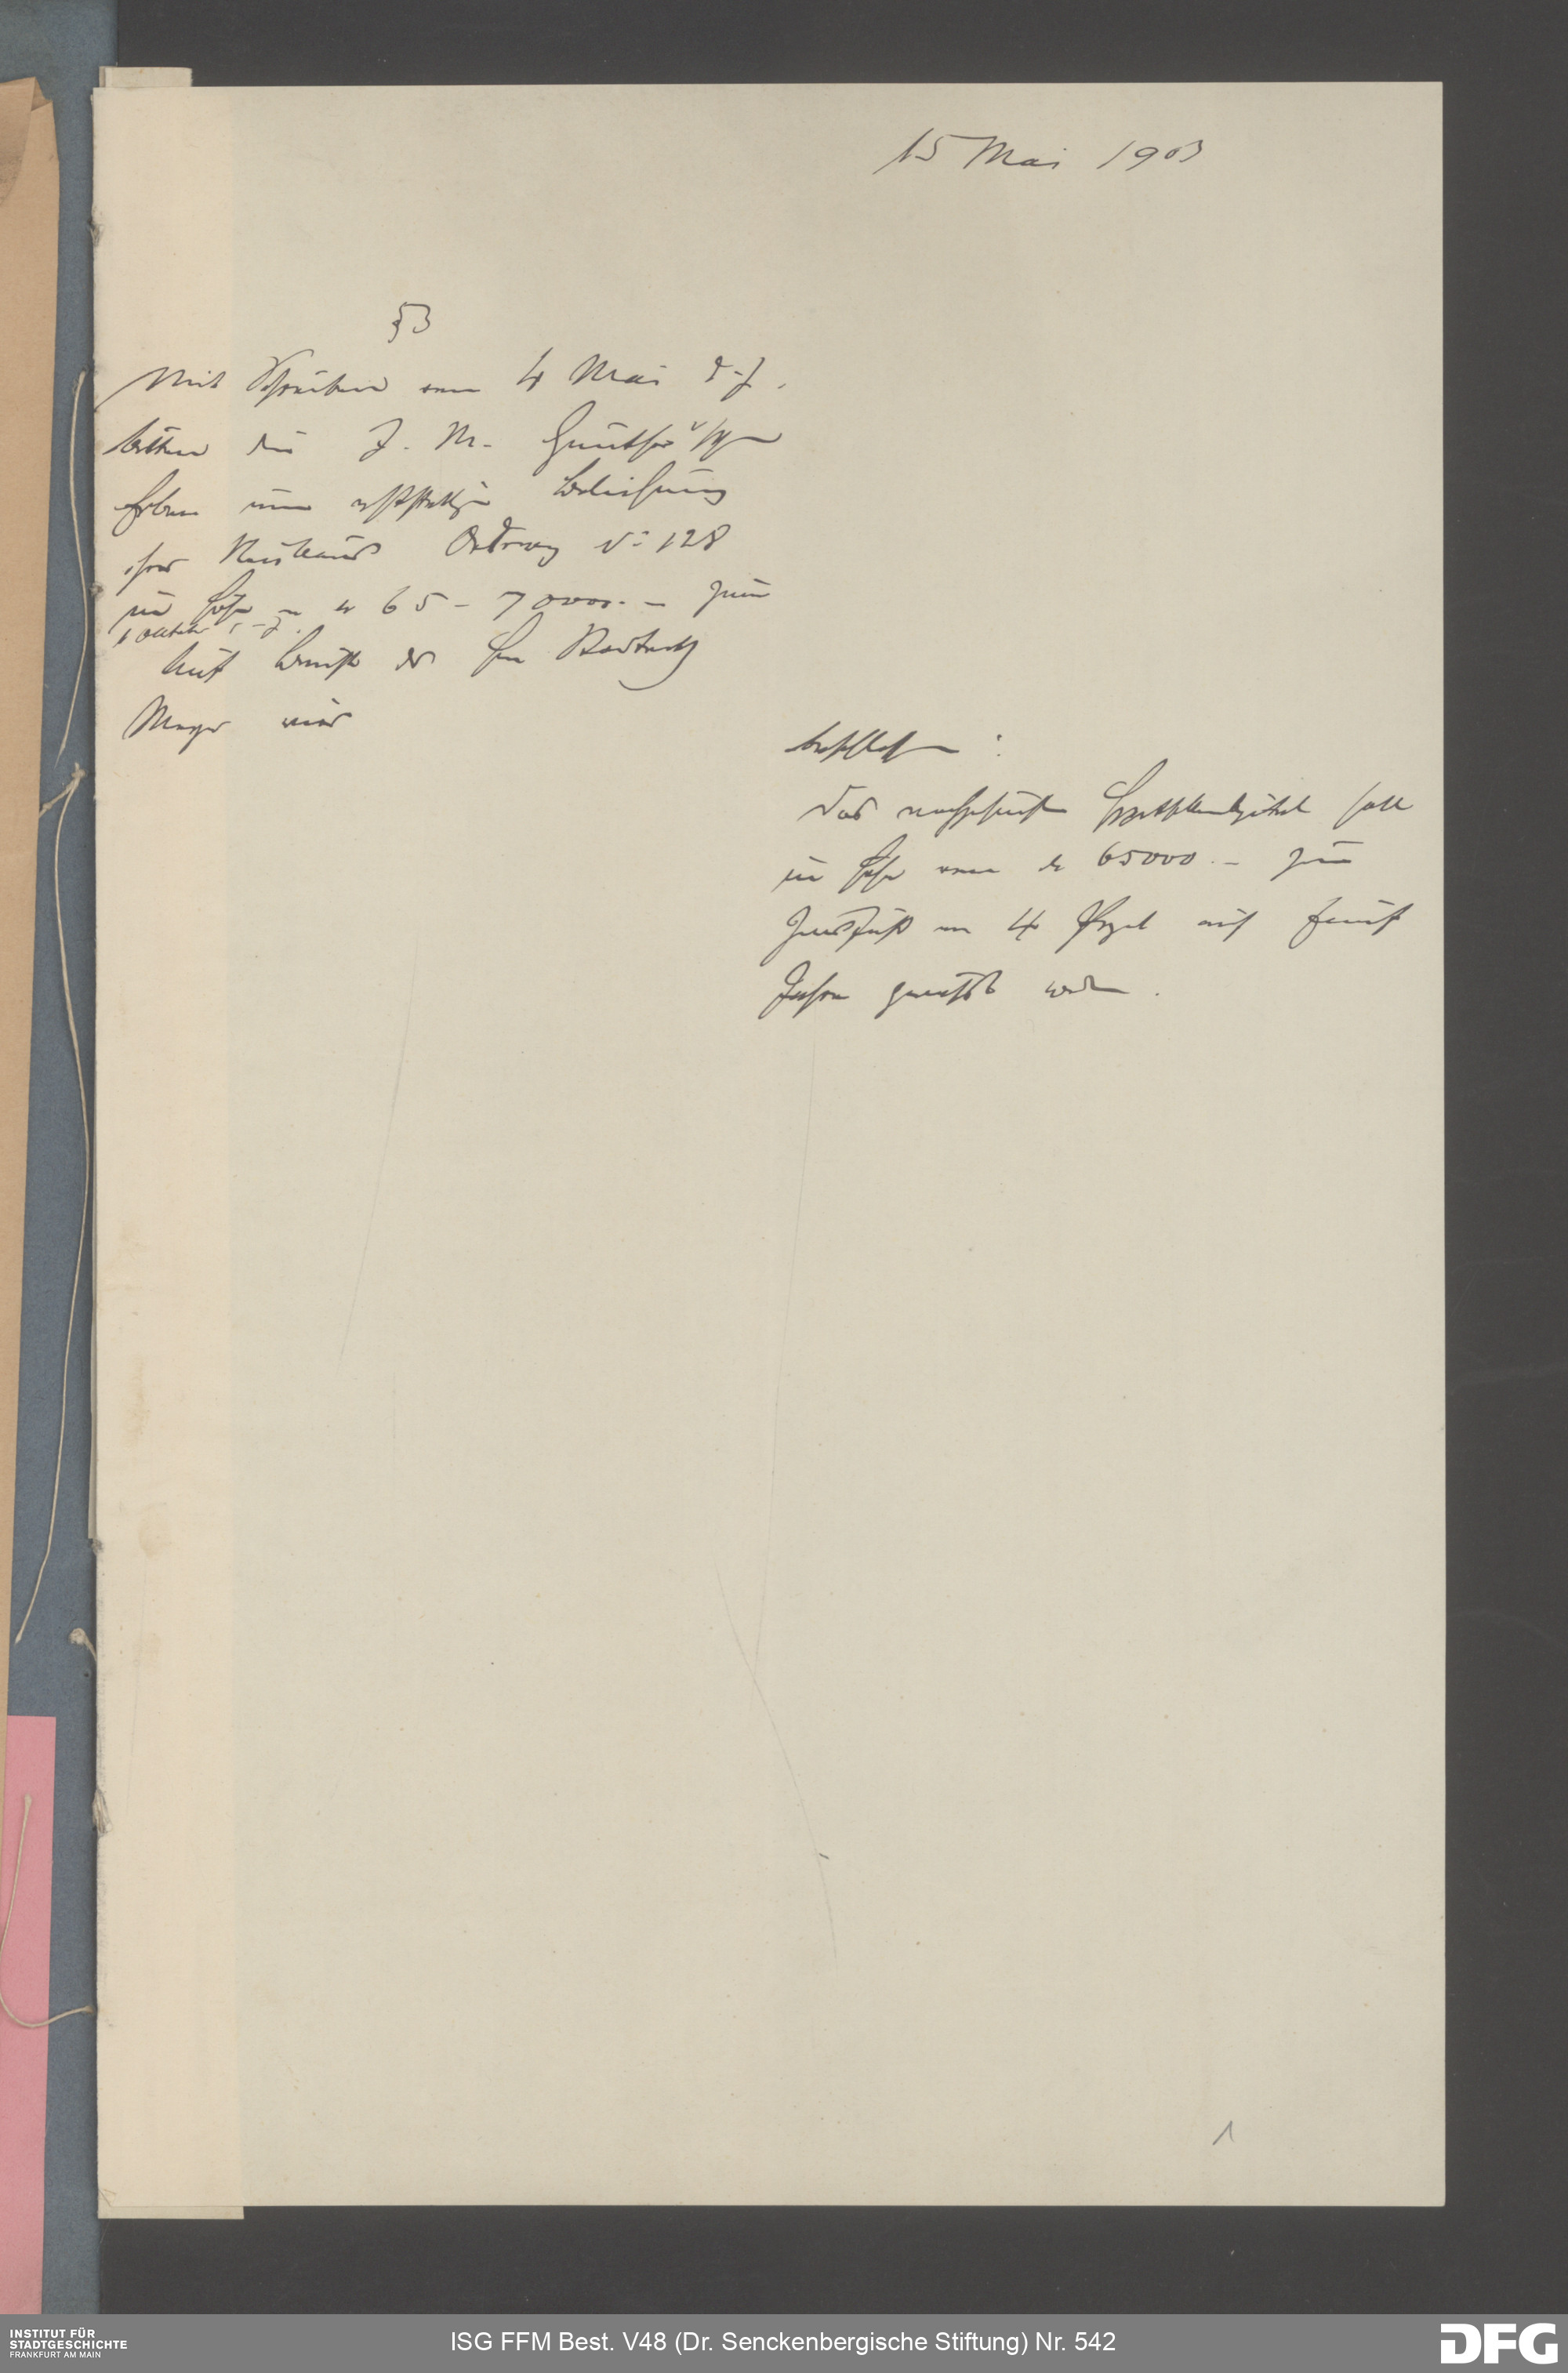 15 Mai 1903
§3
Mit Schreiben vom 4 Mai d. J.
bitten die J. M. Günther'schen
Erben um erststellige Beleihung
ihres Neubaues Oederweg No 128
in Höhe von M 65 - 70000. - zum
1 Oktober d. J.
Auf Bericht des Herrn
Mayer wird
beschlossen :
Das nachgesuchte Hypothekenkapital soll
in Höhe von M 65000. - zum
Zinsfuß von 4 Prozent auf fünf
Jahre gewährt werden.
1
INSTITUT FÜR
STADTGESCHICHTE
FRANKFURT AM MAIN
ISG FFM Best. V48 (Dr. Senckenbergische Stiftung) Nr. 542
DFG